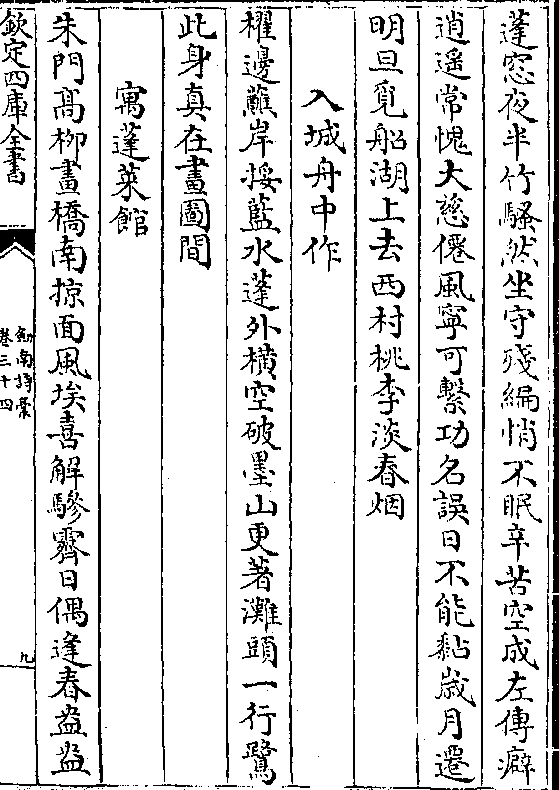 蓬窓夜半竹騷然坐守殘編悄不眠辛苦空成左傳癖
逍遥常愧大慈僊風寧可繫功名誤日不能黏嵗月遷
明旦覓船湖上去西村桃李淡春烟
入城舟中作
櫂邊蘸岸挼藍水蓬外橫空破墨山更著灘頭一行鷺
此身真在畫圖間
寓蓬萊館
朱門髙柳畫橋南掠面風埃喜解驂霽日偶逢春盎盎
欽定四庫全書
劍南詩稾
卷三十四
九